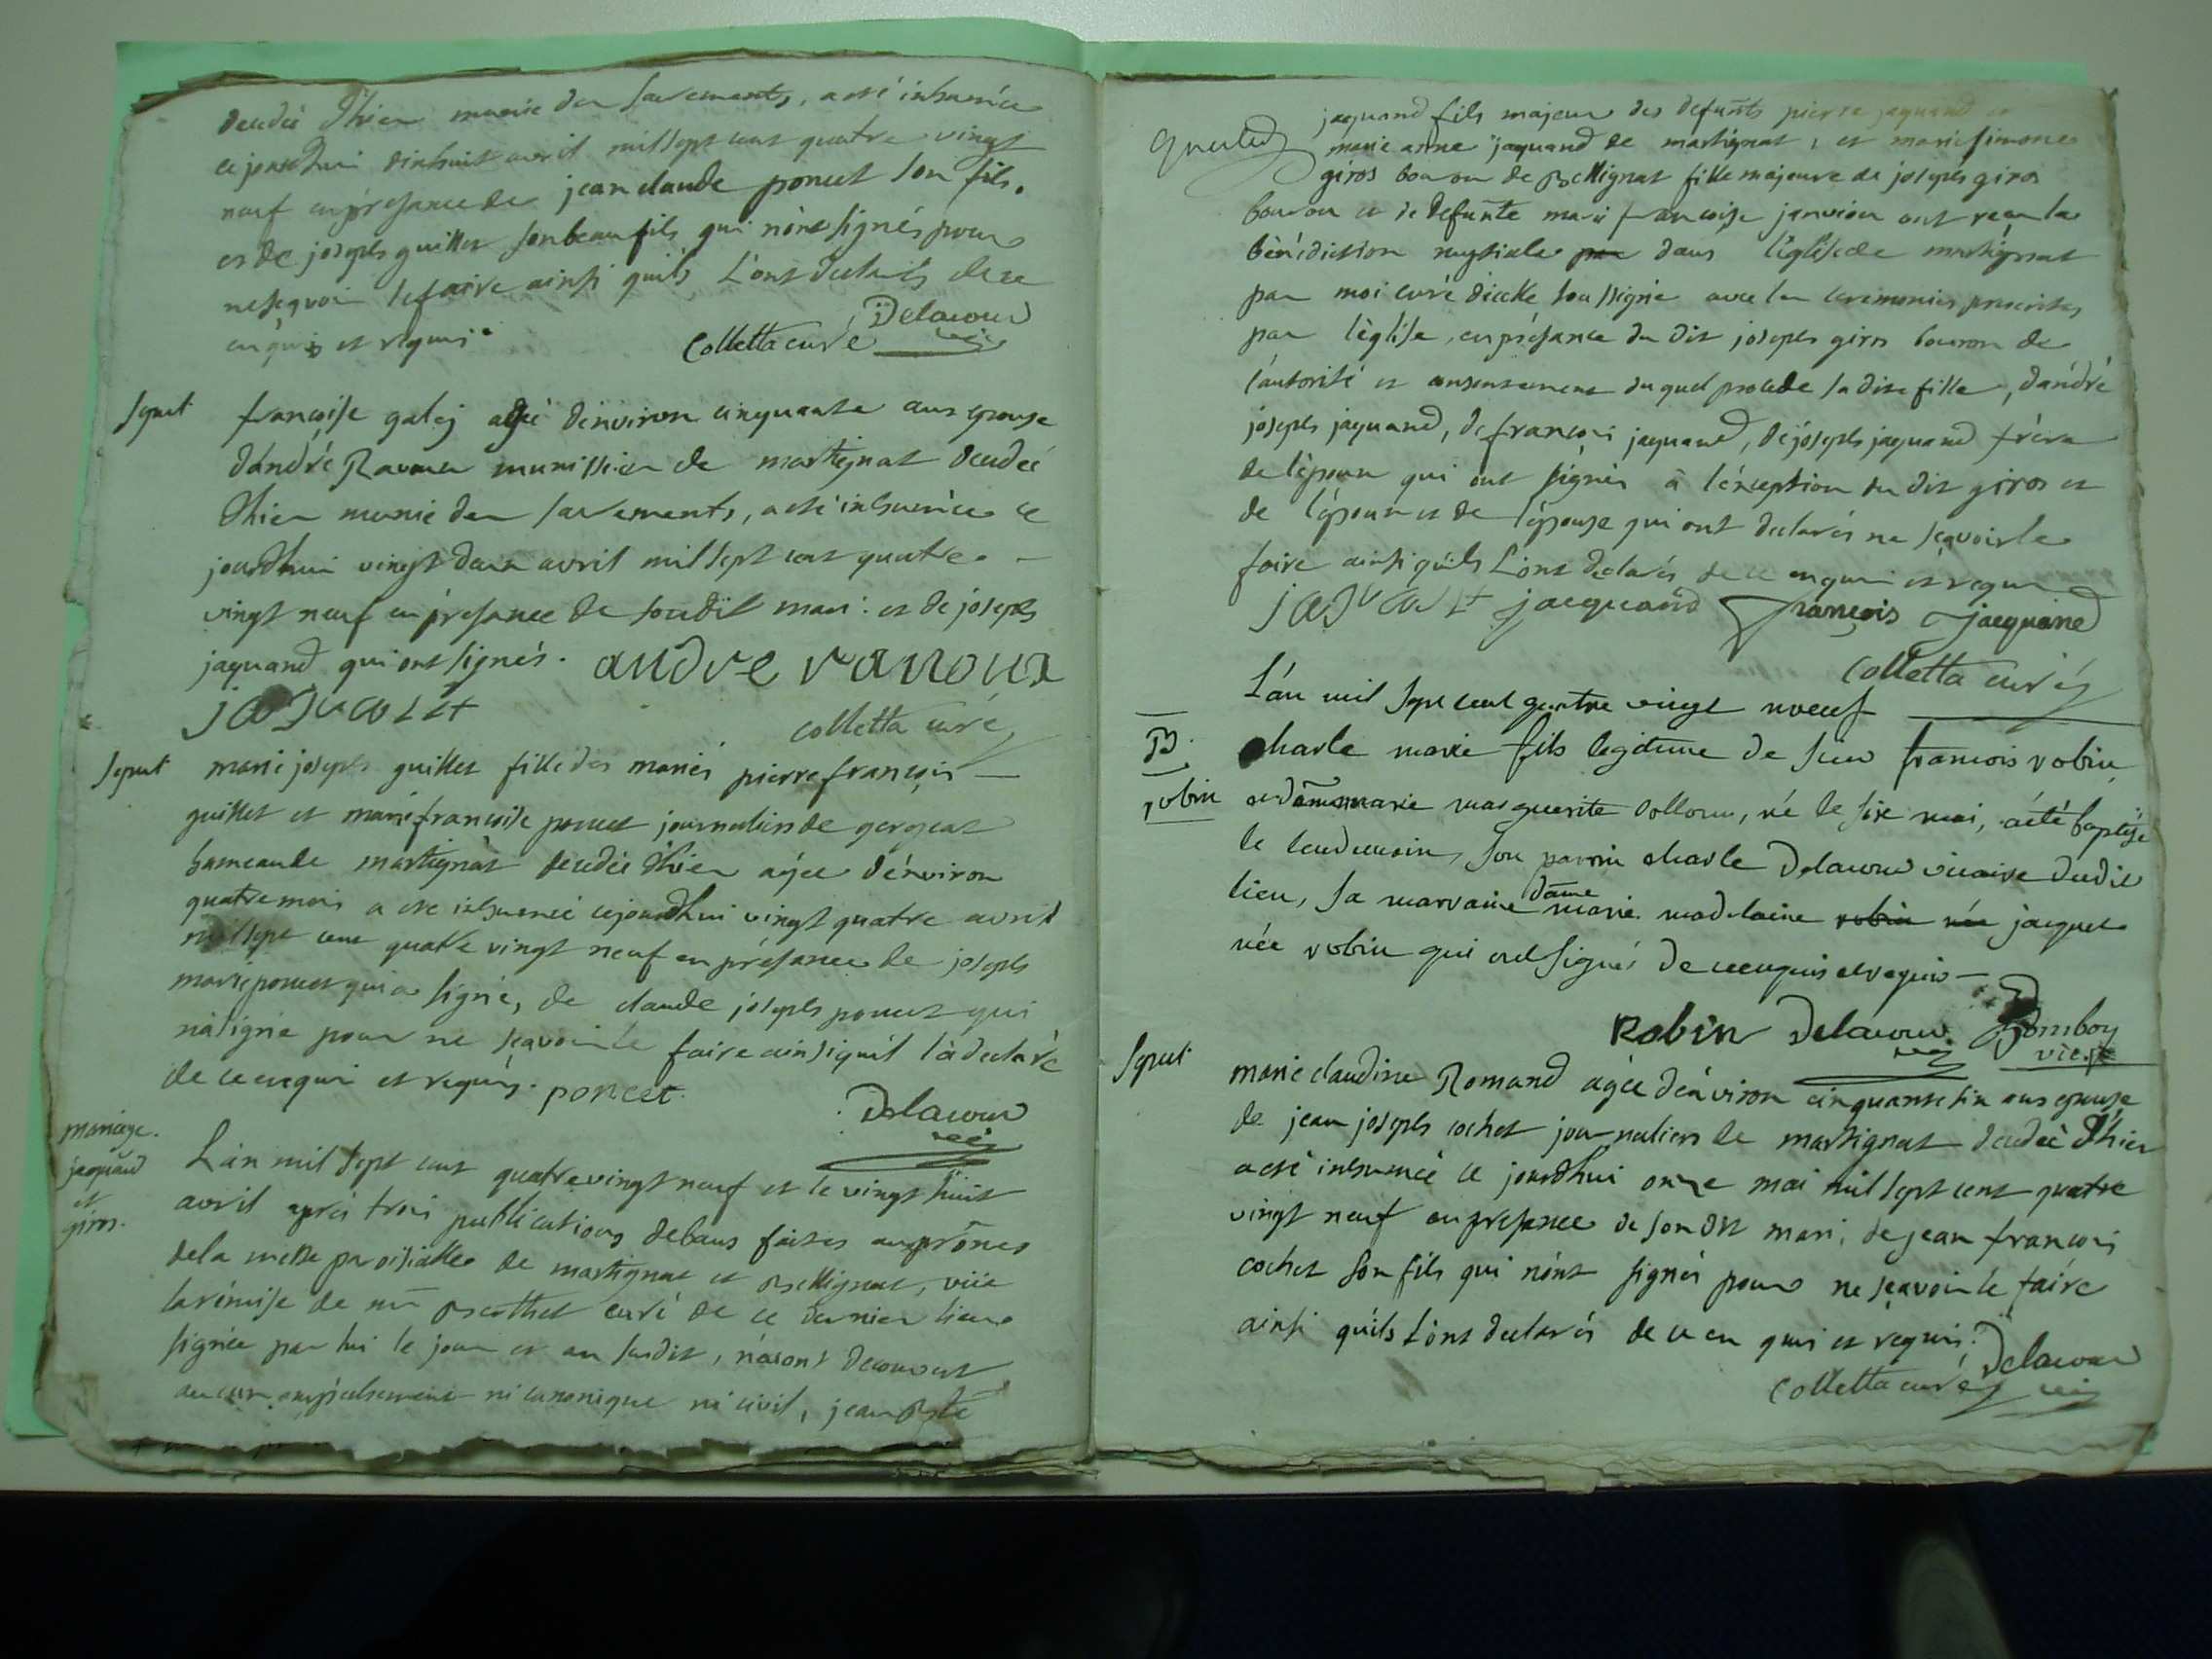 decedée d'hier munie des sacrements, a été inhumée
ce jourdhui dixhuit avril mil sept cent quatre vingt
neuf en présance de jean claude poncet son fils.
et de joseph guillet son beau fils qui n'ont signés pour
ne sçavoir le faire ainsi quils l'ont declarés de ce
enquis et requis.
Colletta curé Delacour vic
sepult françoise galej agée d'environ cinquante ans epouse
d'andré Ravoux de martignat decedée
d'hier munie des sacrements, a été inhumée ce
jourdhui vingt deux avril mil sept cent quatre
vingt neuf en présance de sondit mari et de joseph
jaquand qui ont signés. andre ravoux
colletta curé
sepult marie joseph guillet fille des mariés pierre françois
guillet et marie françoise poncet journaliers de gergeat
hameau de martignat decedée d'hier agée d'environ
quatre mois a été inhumée cejourdhui vingt quatre avril
mil sept cent quatre vingt neuf en présance de joseph
marie poncet qui a signé, de claude joseph poncet qui
n'a signé pour ne sçavoir le faire ainsi quil l'a declaré
de ce enquis et requis. poncet
Delacour vic
mariage.
jaquand
et
giros.
L'an mil sept cent quatre vingt neuf et le vingt huit
avril après trois publications de bans faites aux prônes
de la messe paroissialle de martignat et Bellignat, vüe
la remise de mr Berthet curé de ce dernier lieu
signée par lui le jour et an susdit, n'ayant decouvert
aucun empechement ni canonique ni civil, jean Bte
jaquand fils majeur des defunts pierre jaquand et
marie anne jaquand de martignat, et marie simone
giros bouvon de Bellignat fille majeure de joseph giros
bouvon et de defunte marie françoise janvion ont recu la
bénédiction nuptiale par dans l'église de martignat
par moi curé dicelle soussigné avec les ceremonies prescrites
par l'église, en présance du dit joseph giros bouvon de
l'autorité et consentement duquel procede sa dite fille, d'andré
joseph jaquand, de françois jaquand, de joseph jaquand frère
de l'époux qui ont signés à l'exception du dit giros et
de l'époux et de l'épouse qui ont declarés ne sçavoir le
faire ainsi quils l'ont declarés de ce enquis et requis
jacquand françois jacquand
Colletta curé
L'an mil sept cent quatre vingt noeuf
B. charle marie fils legitime de sieur francois robin
robin et dame marie marguerite, né le six mai, a été baptisé
le lendemain, son parrin charle Delacour vicaire dudit
lieu, sa marraine dame marie madelaine robin née jacquet
née robin qui ont signé de ce enquis et requis
Robin Delacour Bomboy vic.
Sepult marie claudine Romand agée d'environ cinquante six ans epouse
de jean joseph cochet journaliers de martignat decedée d'hier
a été inhumée ce jourdhui onze mai mil sept cent quatre
vingt neuf en presance de son dit mari, de jean françois
cochet son fils qui n'ont signés pour ne sçavoir le faire
ainsi quils l'ont declarés de ce en quis et requis.
Colletta curé Delacour vic